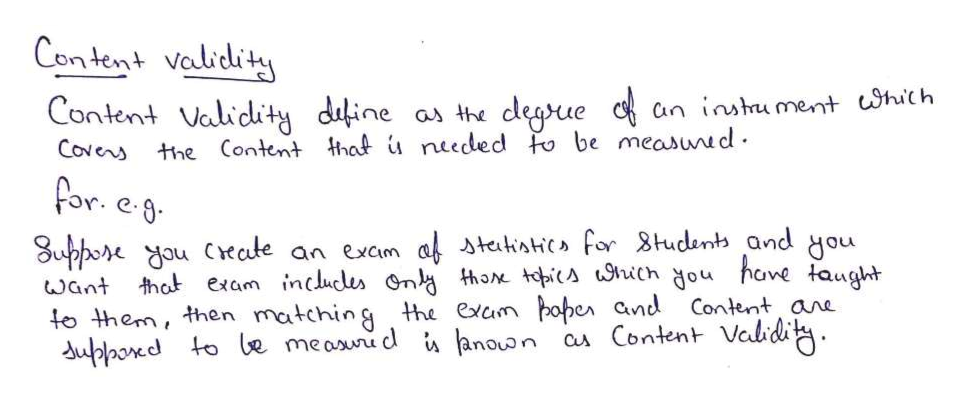 Content validity
Content Validity define as the degree of an instrument which
covers the Content that is needed to be measured.
for. e.g.
Suppose you create an exam of statistics for Students and you
want that exam includes only those topics which you have taught
to them, then matching the exam paper and Content are
supposed to be measured is known as Content Validity.